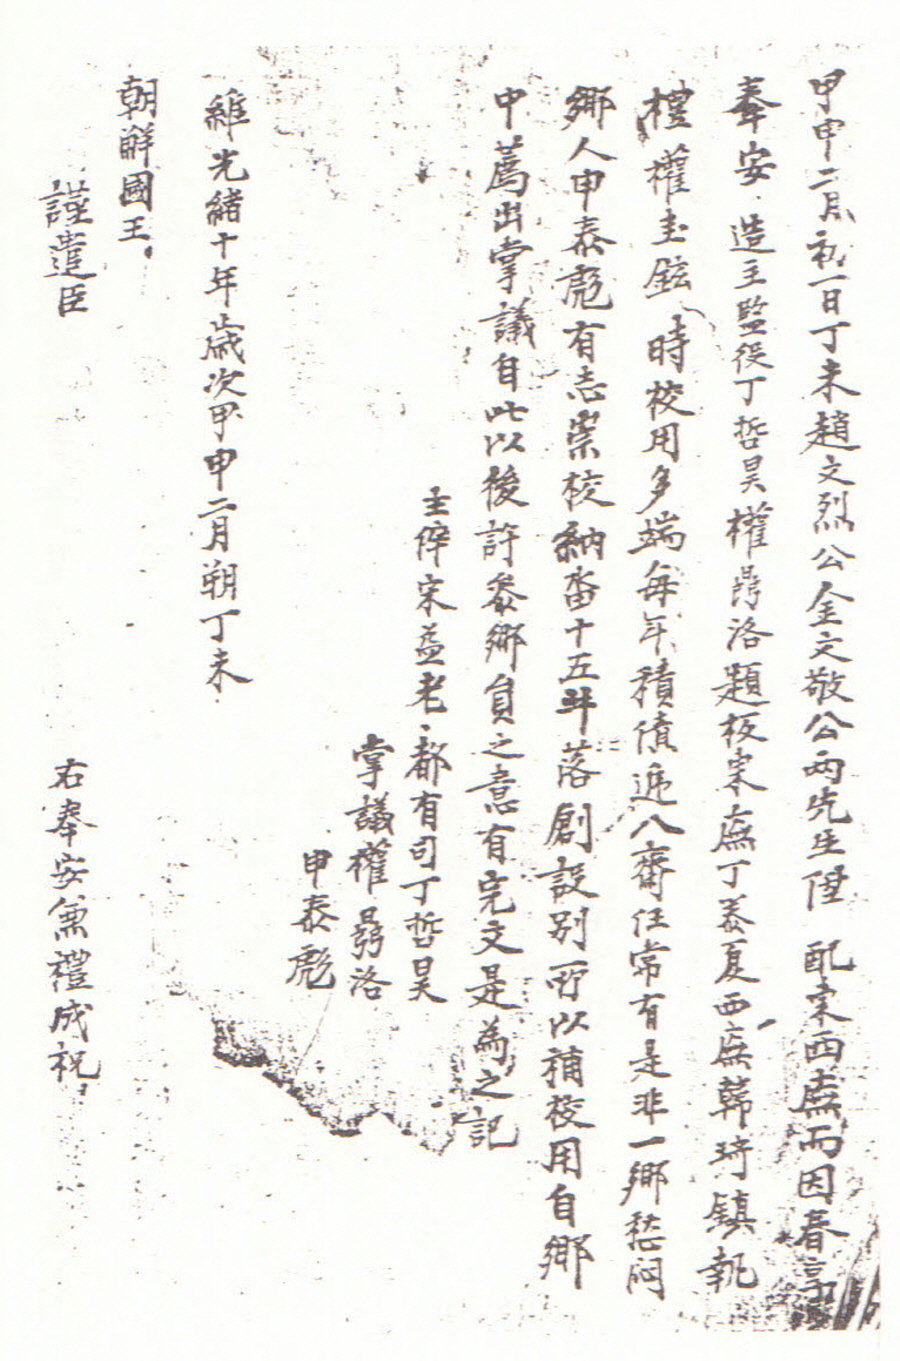 甲申二月初一日丁未趙文烈公金文敬公兩先生陞 配東西廡而因春享
奉安 造主監役丁哲昊權昺洛題板東廡丁泰夏西廡韓琦鎮執
禮權圭鉉 時校用多端每年積債近八齋任常有是非一鄉愁悶
鄉人申泰彪有志崇校納畓十五斗落創設別所以補校用自鄉
中薦出掌議自此以後許參鄉員之意有完文是為之記
主倅宋益老 都有司丁哲昊
掌議權昺洛
申泰彪
維光緒十年歲次甲申二月朔丁未
朝鮮國王
謹遣臣 右奉安兼禮成祝